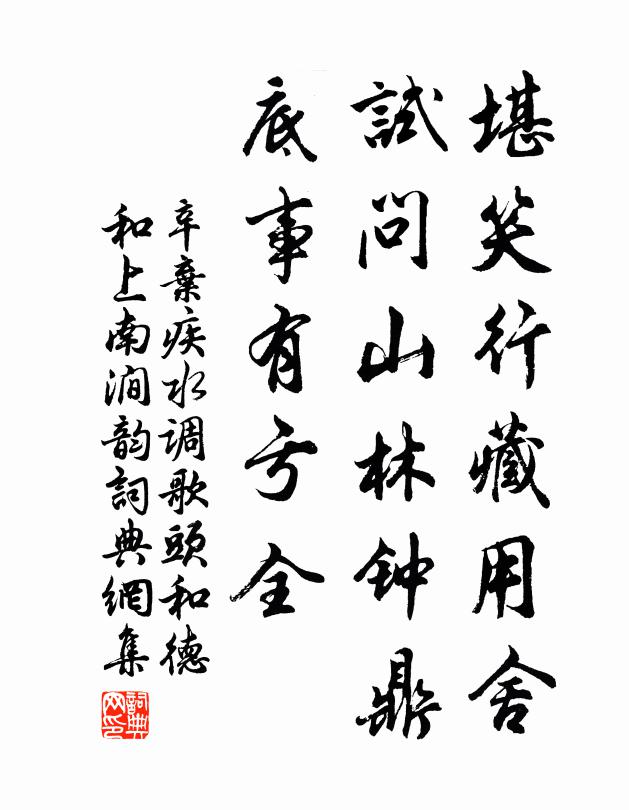 堪笑行藏用舍
試问山林钟鼎
底事有亏全
辛棄疾水调歌頭和德
和上南澗韵詞典網集
詞典網印